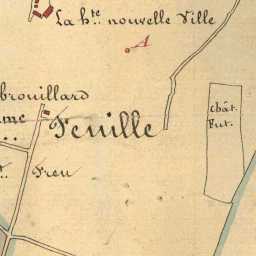 La hte nouvelle Ville
A
brouillard
Chât.
Fut.
me
Feuille
Feu